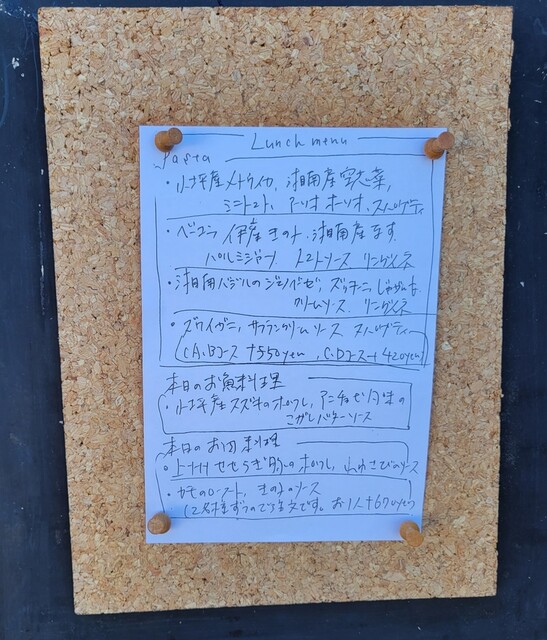 Lunch menu
Pasta
・小坪産メトウイカ、湘南産空芯菜、
ミニトマト、アーリオ オーリオ、スパゲティ
・ベーコン 伊産きのこ、湘南産なす、
パルミジャーノ トマトソース リングイネ
・湘南バジルのジェノベーゼ、ズッキーニ、じゃがいも
クリームソース リングイネ
・ズワイガニ、サフランクリームソース スパゲティ
(A,Bコース +550yen, C,Dコース→420yen)
本日のお魚料理
・小坪産スズキのポワレ、アンチョビ風味の
こがしバターソース
本日のお肉料理
・上州せせらぎポークのポワレ、山わさびのソース
・カモのロースト、きのこのソース
(2名様ずつのご注文です。お1人+670yen)